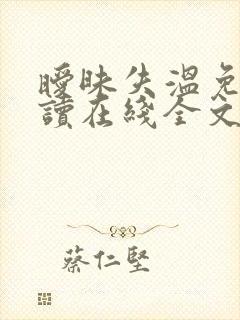 曖昧失溫免
讀在綫全文
蔡仁堅